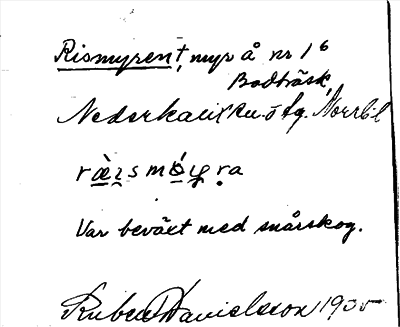 Rismyren†, myr å nr 1⁶
Bodträsk,
Nederkalix sn. ö fg. Norrb l
Var beväxt med snårskog.
Ruben Danielsson 1935